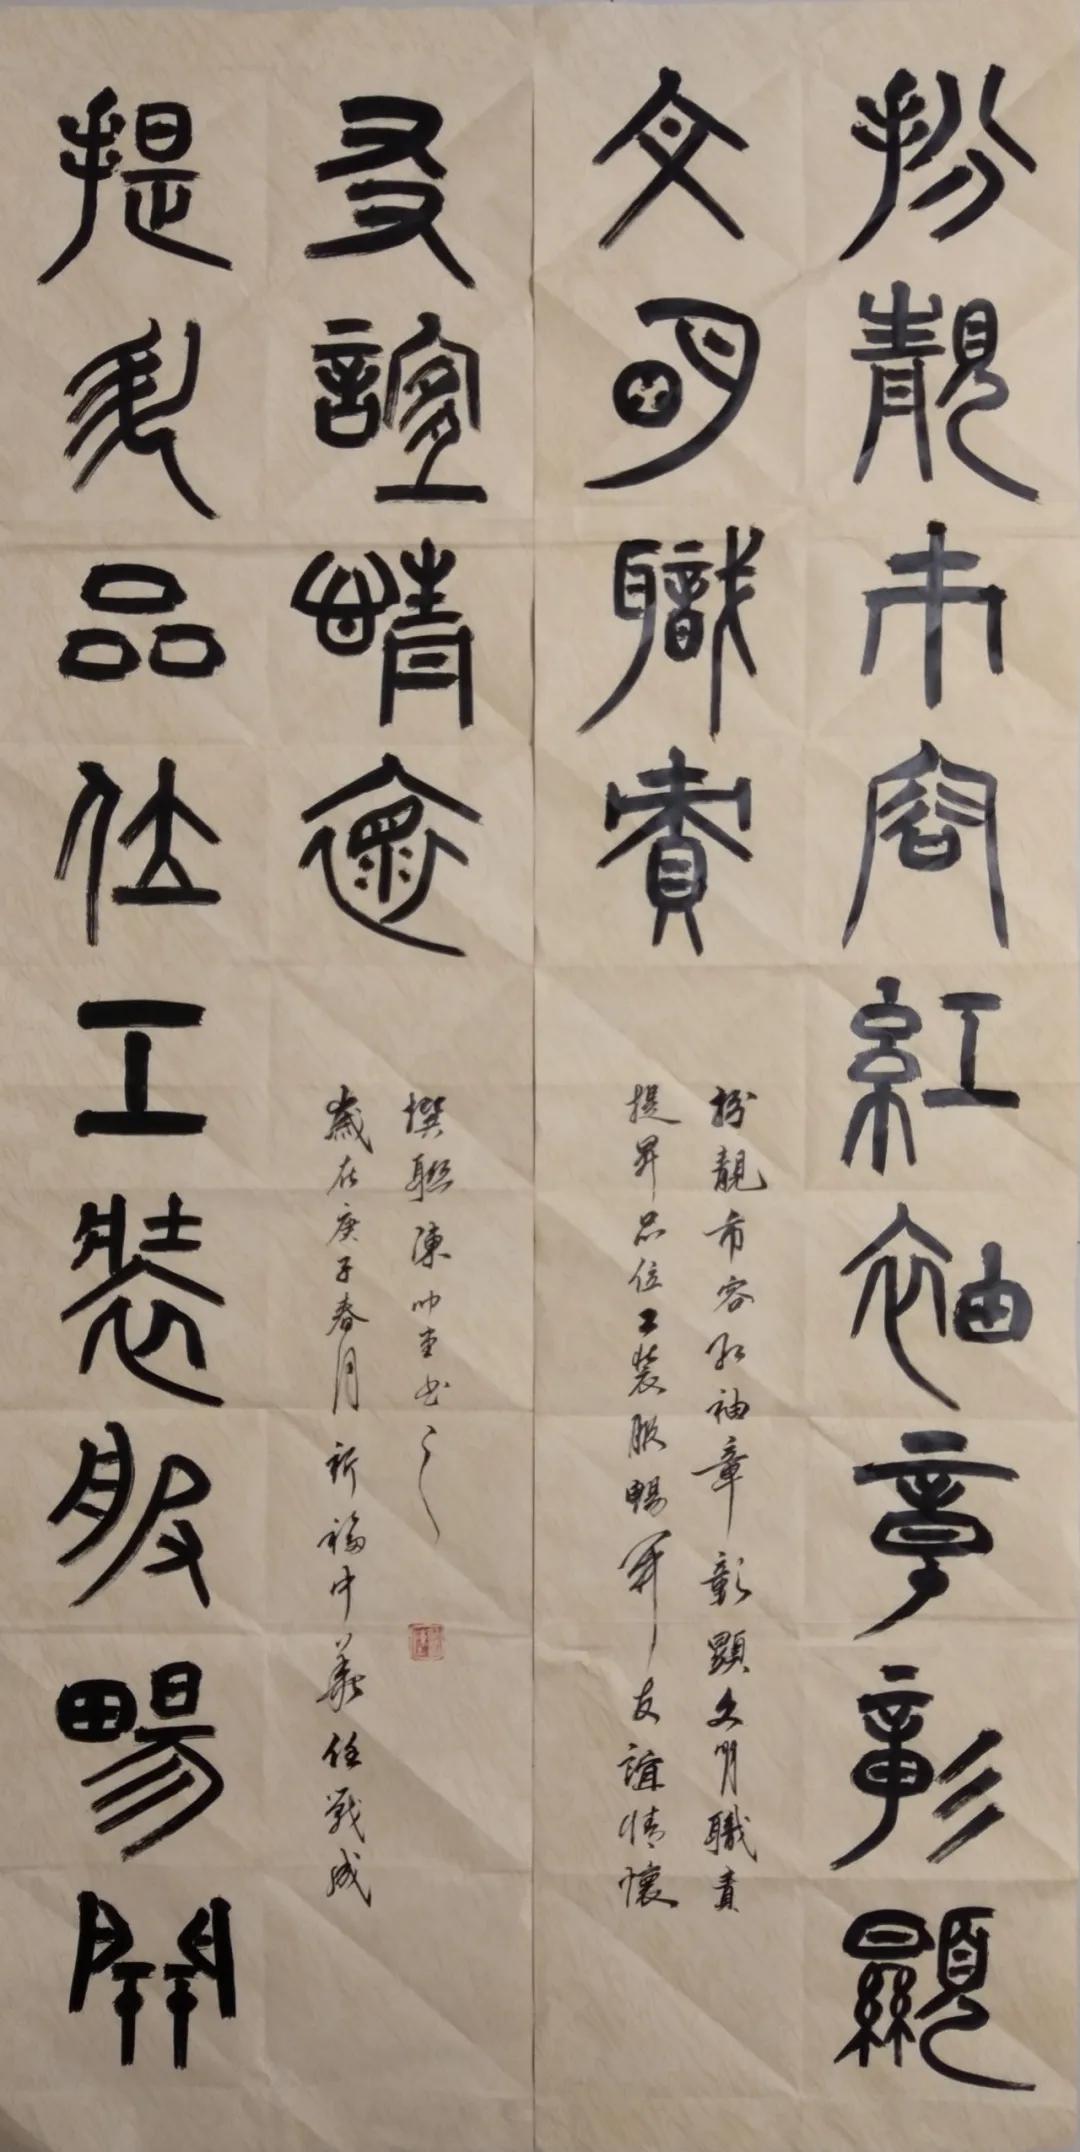 扮靚市容紅袖章彰顯
文明職責
提昇品位工裝服暢開
友誼情懷
扮靚市容红袖章彰顯文明職責
提昇品位工裝服暢開友誼情懷
撰聯陳帅书之
歲在庚子春月祈福中華任戰成